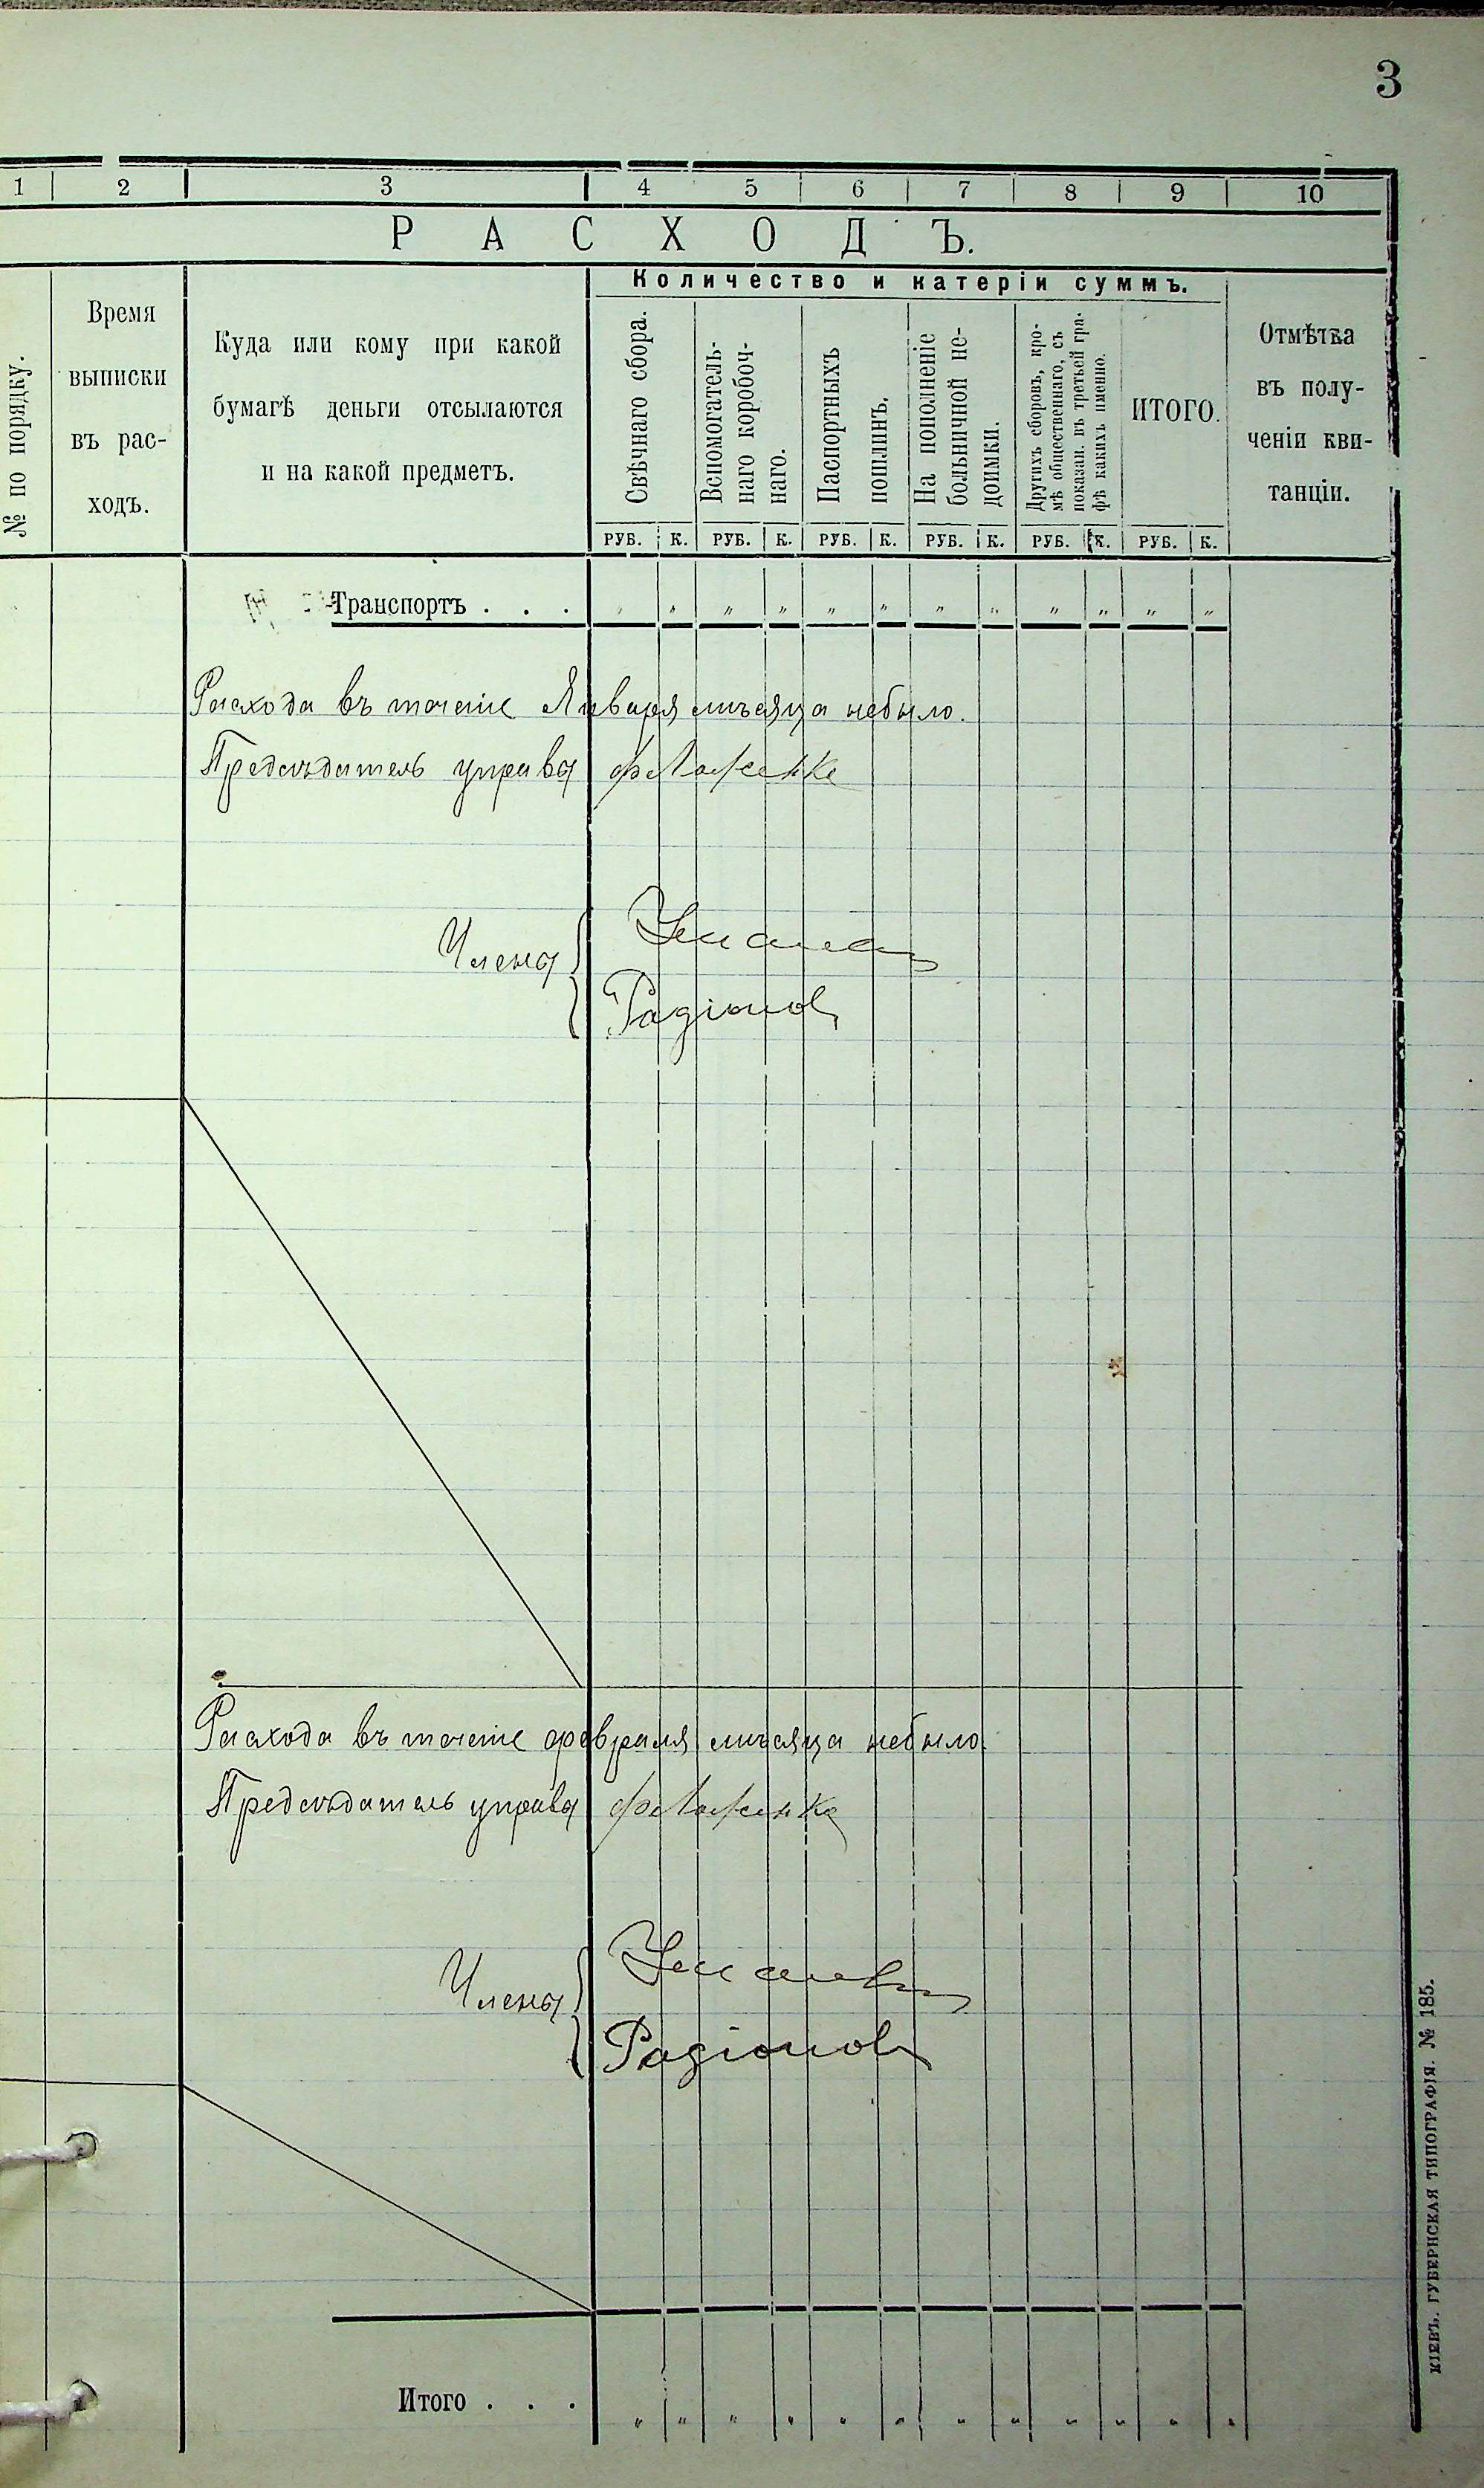 3
1 2 3 4 5 6 7 8 9 10
РАСХОДЪ.
№ по порядку.
Время
выписки
въ рас-
ходъ.
Куда или кому при какой
бумагѣ деньги отсылаются
и на какой предметъ.
Количество и катеріи суммъ.
Свѣчнаго сбора.
Вспомогатель-
наго коробоч-
наго.
Паспортныхъ
пошлинъ.
На пополненіе
больничной не-
доимки.
Другихъ сборовъ, кро-
мѣ общественнаго, съ
показан. въ третьей гра-
фѣ какихъ именно.
ИТОГО.
Отмѣтка
въ полу-
ченіи кви-
танціи.
РУБ. К. РУБ. К. РУБ. К. РУБ. К. РУБ. К. РУБ. К.
Транспортъ . . . " " " " " " " " " " " "
Расхода въ теченіе Января мѣсяца небыло.
Предсѣдатель управы
Члены
Радіонов
Расхода въ теченіе февраля мѣсяца небыло.
Предсѣдатель управы
Члены
Радіонов
Итого . . . " " " " " " " " " " " "
КІЕВЪ. ГУБЕРНСКАЯ ТИПОГРАФІЯ. № 185.